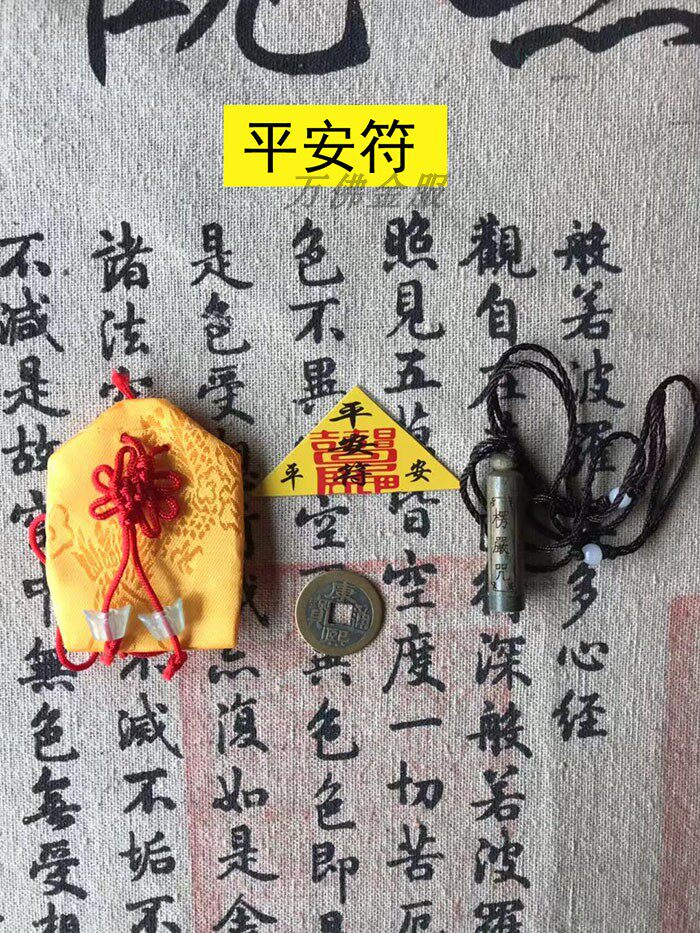 平安符
万佛金服
般若波羅多心经
觀自在深般若波羅
照見五皆空度一切苦厄
色不異空異色色即是
是色受復如是舍
諸法不減不垢不
不減是故空中無色無受想
平安符
平 安
康熙通寶
楞嚴咒